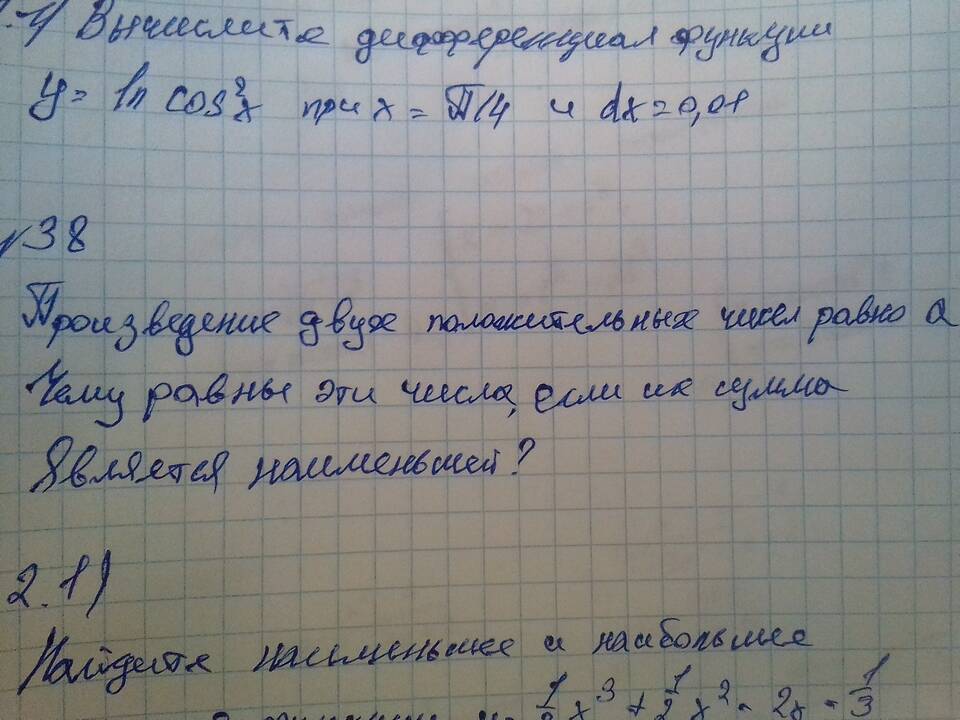 Вычислите дифференциал функции
y= ln cos²x при x = π/4 и dx=0,01
№38
Произведение двух положительных чисел равно a
Чему равны эти числа, если их сумма
Является наименьшей?
2.1)
Найдите наименьшее и наибольшее
x³ + 1/2 x² - 2x - 1/3